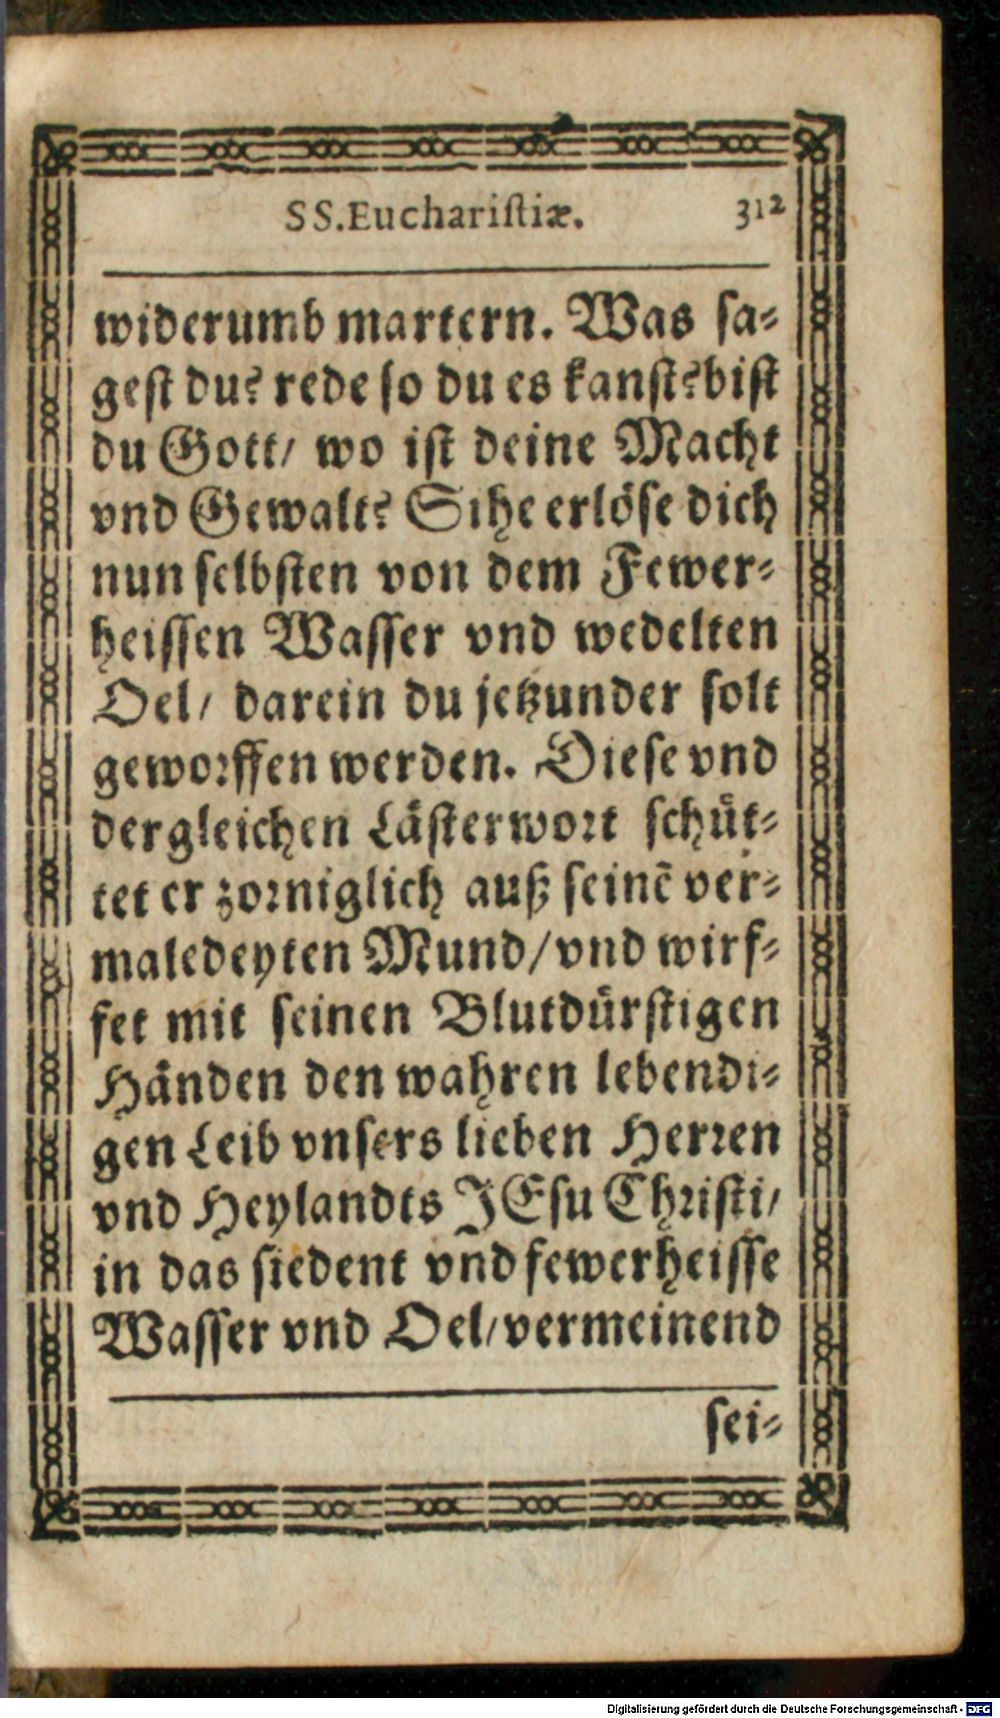 SS.Euchariſtiæ. 312
widerumb martern. Was ſa-
geſt du? rede ſo du es kanſt? biſt
du Gott/ wo iſt deine Macht
vnd Gewalt? Sihe erlöſe dich
nun ſelbſten von dem Fewer-
heiſſen Waſſer vnd wedelten
Oel/ darein du jetzunder ſolt
geworffen werden. Dieſe vnd
dergleichen Läſterwort ſchüt-
tet er zorniglich auß ſeinē ver-
maledeyten Mund/ vnd wirf-
fet mit ſeinen Blutdürſtigen
Händen den wahren lebendi-
gen Leib vnſers lieben Herren
vnd Heylandts JEſu Chriſti/
in das ſiedent vnd fewerheiſſe
Waſſer vnd Oel/ vermeinend
ſei-
Digitalisierung gefördert durch die Deutsche Forschungsgemeinschaft - DFG